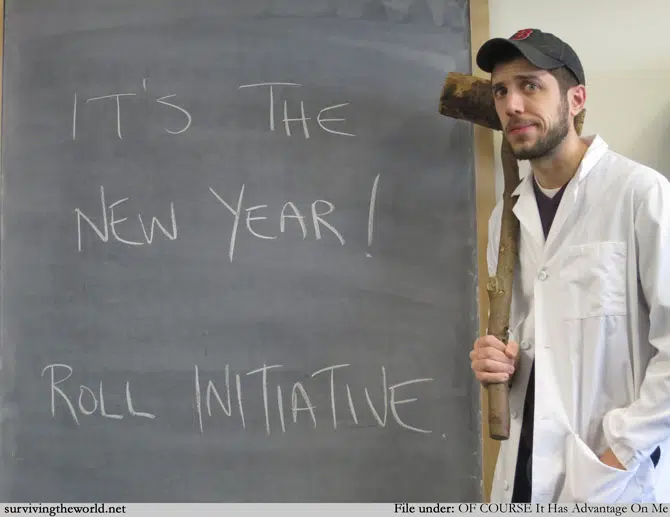 IT'S THE
NEW YEAR!
ROLL INITIATIVE.
survivingtheworld.net
File under: OF COURSE It Has Advantage On Me